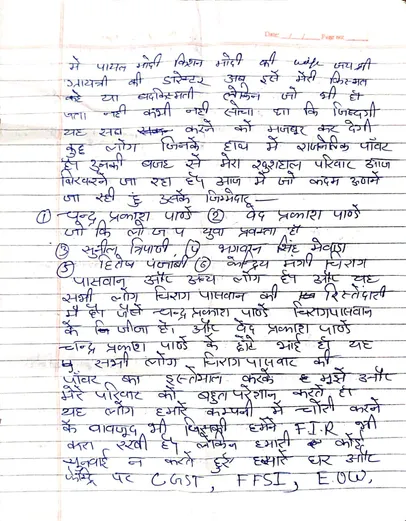 में पायल मोदी किशन मोदी की wife जय श्री
गायत्री की डारेक्टर अब इसे मेरी किस्मत
कहे या बदकिस्मती लेकिन जो भी हो
पता नही कभी नही सोचा था कि जिन्दगी
यह सब करने को मजबूर कर देगी
कुछ लोग जिनके हाथ में राजनैतिक पॉवर
है उनकी वजह से मेरा खुशहाल परिवार आज
बिखरने जा रहा है। आज में जो कदम उठाने
जा रही हुं उसके जिम्मेदार
① चन्द्र प्रकाश पाण्डे ② वेद प्रकाश पाण्डे
जो कि लो ज प युवा प्रवक्ता है
③ सुनील त्रिपाठी, ④ भगवान सिंह मेवाडा
⑤ हितेष पंजाबी ⑥ केन्द्रिय मंत्री चिराग
पासवान और अन्य लोग है। और यह
सभी लोग चिराग पासवान की रिस्तेदारी
में है। जैसे चन्द्र प्रकाश पाण्डे चिरागपासवान
के जीजा है। और वेद प्रकाश पाण्डे
चन्द्र प्रकाश पाण्डे के छोटे भाई है। यह
सभी लोग चिराग पासवान की
पॉवर का इस्तेमाल करके मुझे और
मेरे परिवार को बहुत परेशान करते है।
यह लोग हमारे कम्पनी में चोरी करने
के बावजूद भी जिसकी हमने F.I.R भी
करा रखी है। लेकिन हमारी कोई
सुनवाई न करते हुए हमारे घर और
फेक्ट्रि पर CGST, FFSI, E.O.W,